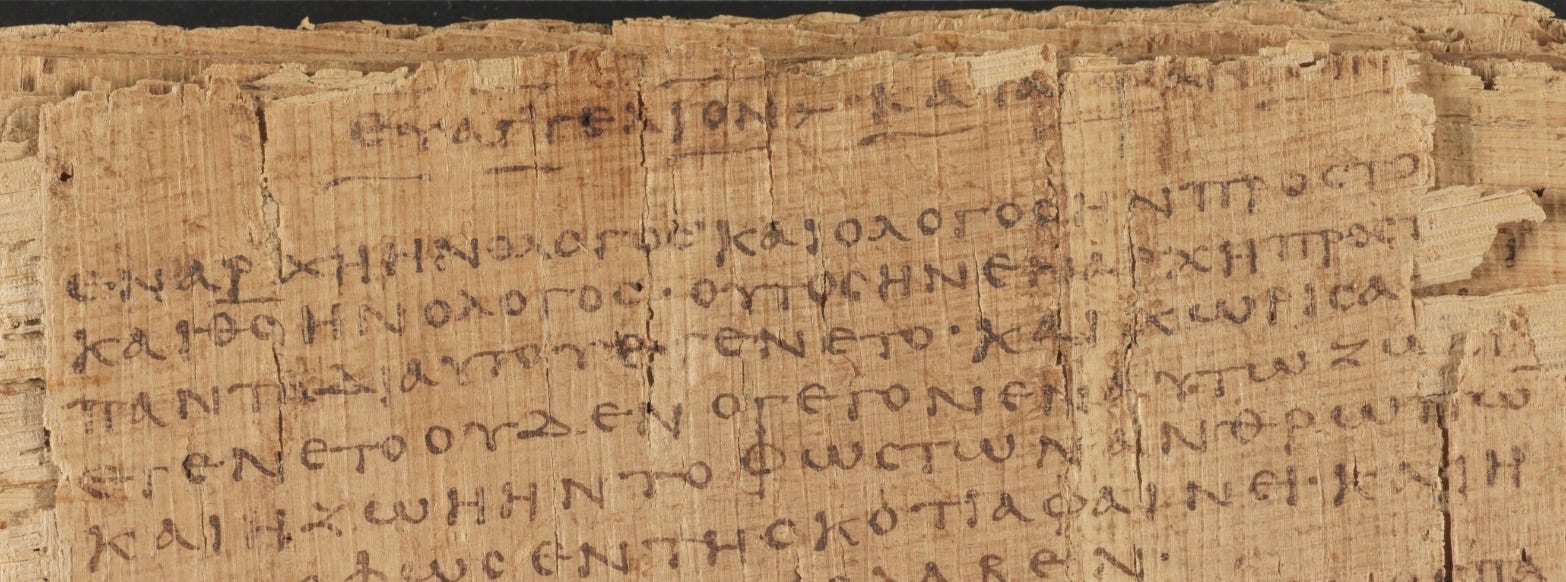 ευαγγελιον κατα
εναρχηηνολογοσκαιολογοσηνπροστο
καιθσηνολογοσ·ουτοσηνεναρχηπροστ
πανταδιαυτουεγενετο·καιχωρισα
εγενετοουδενογεγονενεναυτωζω
καιηζωηηντοφωστωνανθρωπω̅
φωσεντησκοτιαφαινει·καιη